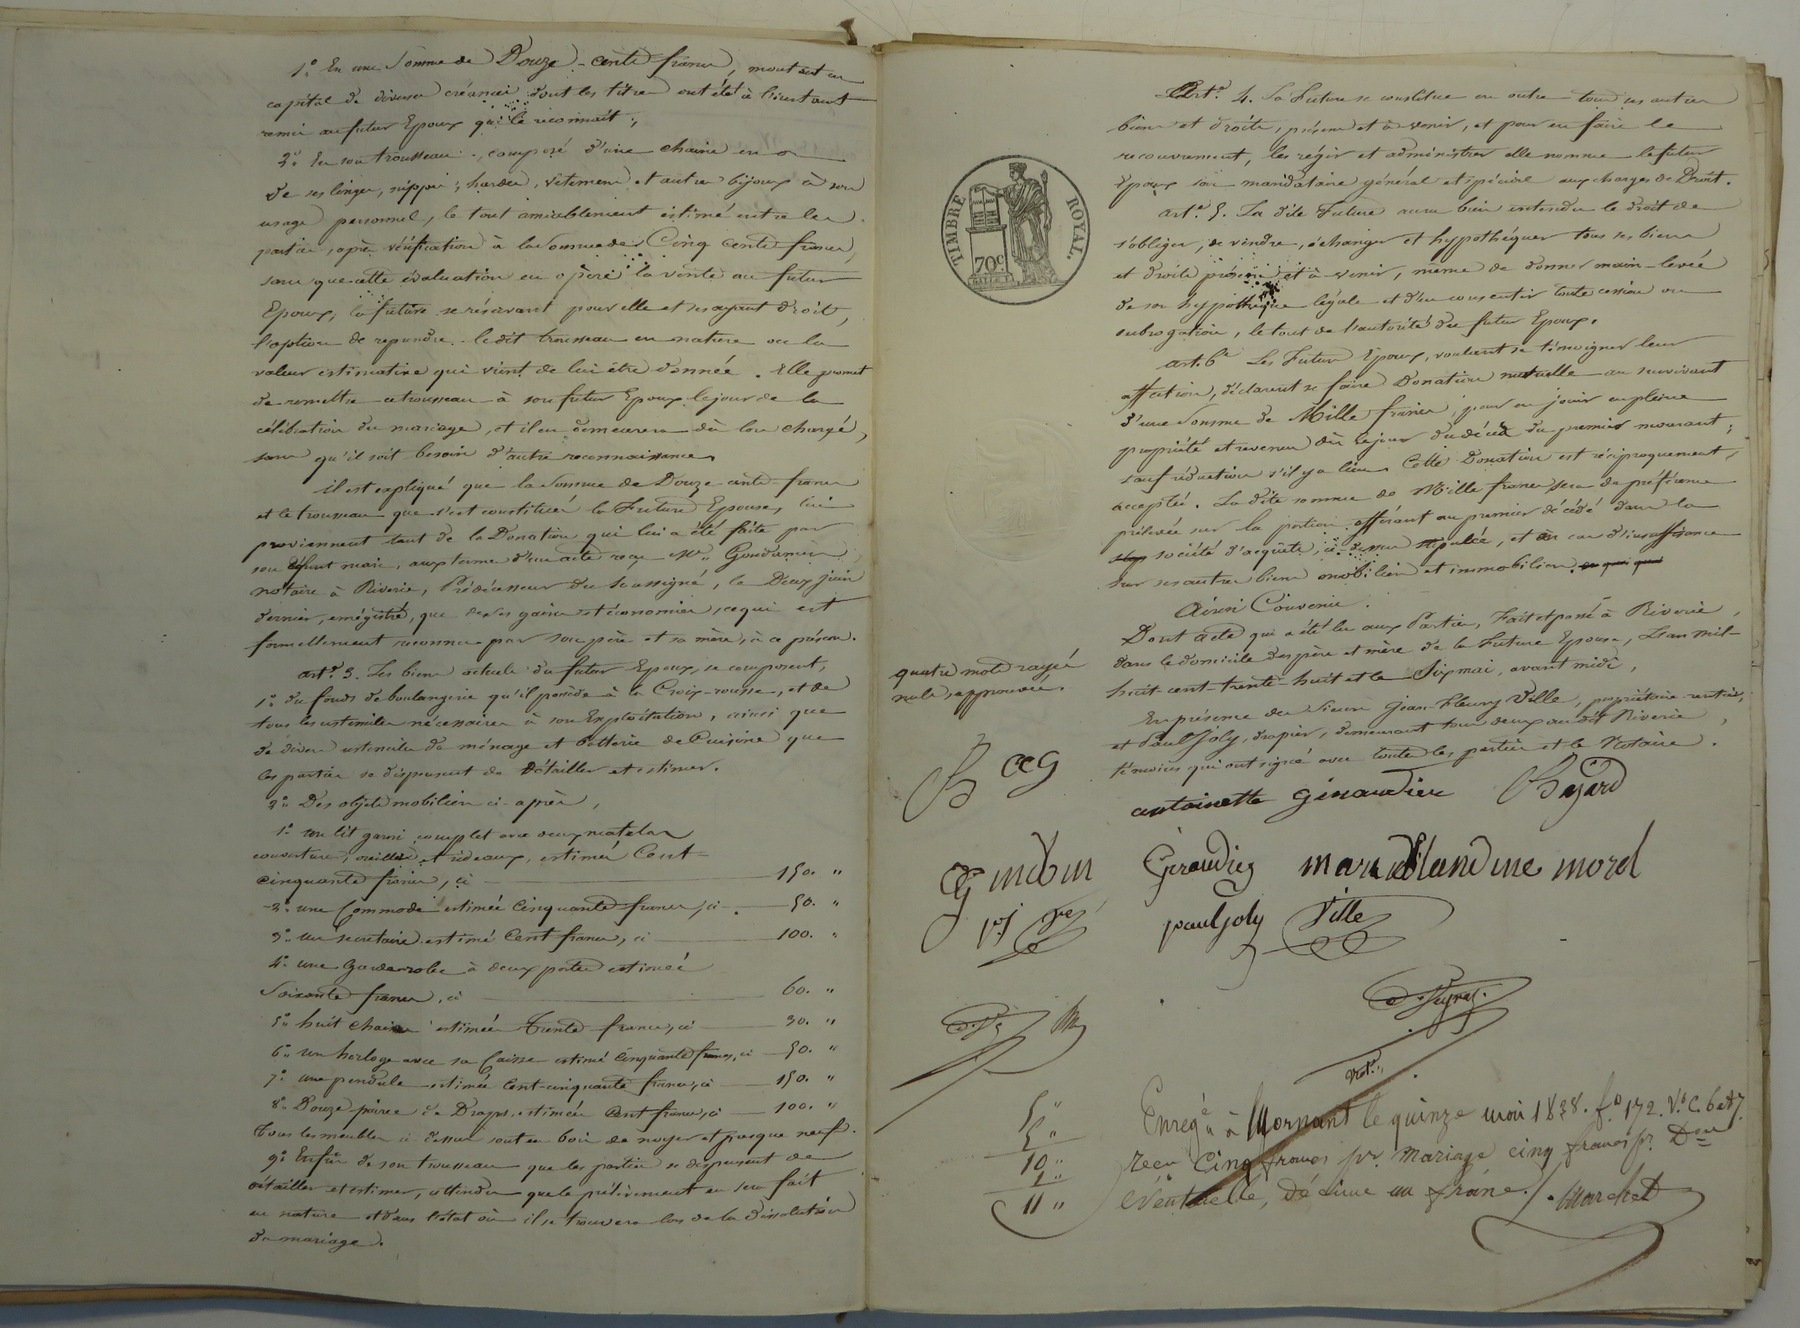 1.° En une Somme de Douze-cents francs, montant en
capital de diverses créances dont les titres ont été à l'instant
remis au futur Epoux qui le reconnait;
2.° En son trousseau, composé d'une chaine en or
de ses linges, nippes, hardes, vêtemens et autres bijoux à son
usage personnel, le tout amiablement estimé entre les
parties, après vérification à la Somme de Cinq cents francs,
sans que cette évaluation en opère la vente au futur
Epoux, la future se réservant pour elle et ses ayant droit,
l'option de reprendre le dit trousseau en nature ou la
valeur estimative qui vient de lui être donnée. Elle promet
de remettre ce trousseau à son futur Epoux le jour de la
célébration du mariage, et il en demeurera dès lors chargé,
sans qu'il soit besoin d'autre reconnaissance.
il est expliqué que la Somme de Douze-cents francs
et le trousseau que s'est constitués la Future Epouse, lui
proviennent tant de la Donation qui lui a été faite par
son défunt mari, aux termes d'un acte reçu Me
notaire à Riverie, Prédécesseur du Soussigné, le Deux juin
dernier, enregistré, que de ses gains et économies, ce qui est
formellement reconnu par son père et sa mère, à ce présens.
art. 3. Les biens actuels du futur Epoux, se composent,
1.° du fonds de boulangerie qu'il possède à la Croix-rousse, et de
tous les ustensiles nécessaires à son Exploitation, ainsi que
de divers ustensiles de ménage et batterie de Cuisine que
les parties se dispensent de Détailler et estimer.
2.° Des objets mobiliers ci-après,
1.° un lit garni complet avec deux matelas
couverture, oreillers et rideaux, estimés Cent-
cinquante francs, ci 150. "
2.° une Commode estimée Cinquante francs, ci 50. "
3.° un secretaire estimé Cent francs, ci 100. "
4.° une Garderobe à deux portes estimée
Soixante francs, ci 60. "
5.° huit chaises estimées Trente francs, ci 30. "
6.° un horloge avec sa Caisse estimé Cinquante francs, ci 50. "
7.° une pendule estimée Cent-cinquante francs, ci 150. "
8.° Douze paires de Draps estimées Cent francs, ci 100. "
Tous les meubles ci dessus sont en bois de noyer et presque neufs.
9.° Enfin de son trousseau que les parties se dispensent de
détailler et estimer, attendu que le prélèvement en sera fait
en nature et dans l'état où il se trouvera lors de la dissolution
du mariage.
TIMBRE ROYAL
70c
Art. 4. La Future se constitue en outre tous ses autres
biens et droits, présens et à venir, et pour en faire le
recouvrement, les régir et administrer elle nomme le futur
Epoux son mandataire général et spécial aux charges de Droit.
art. 5. La dite Future aura bien entendu le droit de
s'obliger, de vendre, échanger et hypothéquer tous ses biens
et droits présens et à venir, même de donner main-levée
de son hypothèque légale et d'en consentir toute cession ou
subrogation, le tout de l'autorité du futur Epoux.
art. 6e Les Futurs Epoux, voulant se témoigner leur
affection, déclarent se faire Donation mutuelle au survivant
d'une Somme de Mille francs, pour en jouir en pleine
propriété et revenu dès le jour du décès du premier mourant;
sauf réduction s'il y a lieu. Cette Donation est réciproquement
acceptée. La dite somme de Mille francs sera de préférence
prélevée sur la portion afférant au premier décédé dans la
société d'acquêts, ci-dessus stipulée, et en cas d'insuffisance
sur ses autres biens mobiliers et immobiliers.
Ainsi Convenu.
Dont acte qui a été lu aux Parties, Fait et passé à Riverie,
dans le domicile des père et mère de la Future Epouse, L'an mil-
huit-cent-trente-huit et le Six mai, avant midi,
En présence des Sieurs Jean-Fleury Ville, propriétaire rentier,
et Paul Joly, drapier, demeurant tous deux au dit Riverie,
témoins qui ont signé avec toutes les parties et le Notaire.
quatre mots rayés
nuls, approuvés.
antoinette Giraudier Bajard
Giraudier marie Blandine morel
pauljoly Ville
Not.
5 "
5 "
10 "
1 "
11 "
Enreg.é à Mornant le quinze mai 1838. f.° 172. V.° C. 6 et 7.
reçu Cinq francs pr. mariage cinq francs pr. Don
éventuelle, décime un franc.